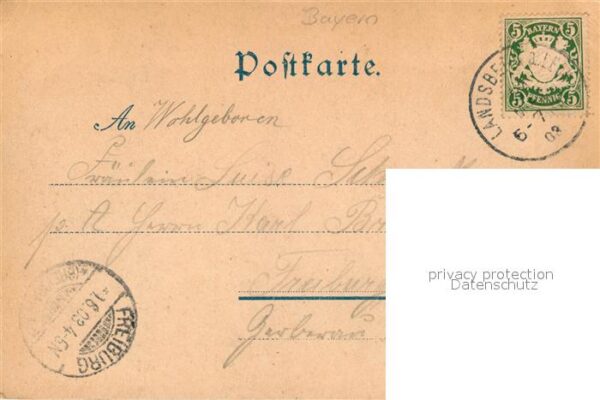 Bayern
5 BAYERN 5
5 PFENNIG 5
LANDSBE
6-7
03
Postkarte.
An Wohlgeboren
Fräulein Luise Sch
p. A. Herrn Karl Br
Freiburg
Gerberau
privacy protection
Datenschutz
FREIBURG
1.6.03.4-5N